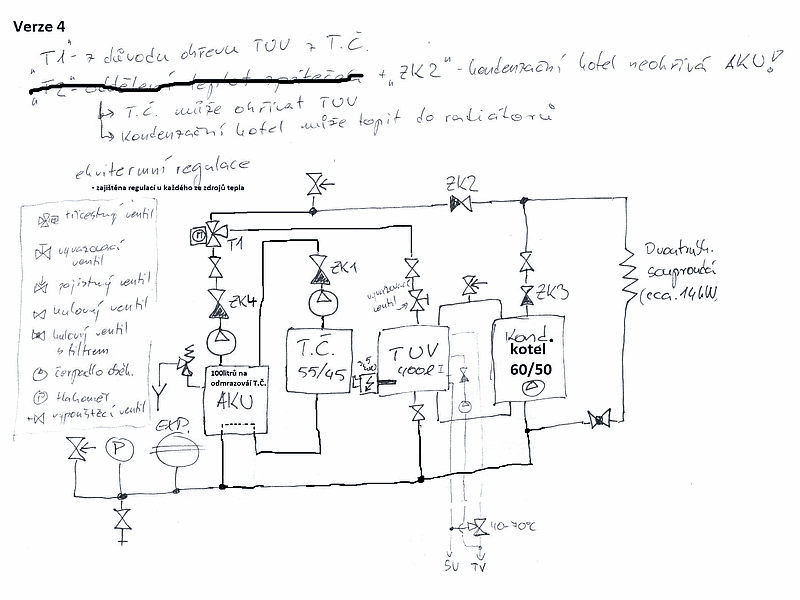 Verze 4
"T1" - z důvodu ohřevu TUV z T.Č.
"T2" - oddělení teplot zpátečka + "ZK2" - kondenzační kotel neohřívá AKU!
↳ T.Č. může ohřívat TUV
↳ kondenzační kotel může topit do radiátorů
ekvitermní regulace
• zajištěna regulací u každého ze zdrojů tepla
třícestný ventil
vyvažovací
ventil
pojistný ventil
kulový ventil
kulový ventil
s filtrem
čerpadlo oběh.
tlakoměr
vypouštěcí ventil
ZK2
M
T1
ZK1
ZK4
vyvažovací
ventil
ZK3
souproudá
(cca. 14kW)
T.Č.
55/45
TUV
400l
Kond.
kotel
60/50
100litrů na
odmrazováí T.Č.
AKU
EXP.
P
40-70°C
SV
TV